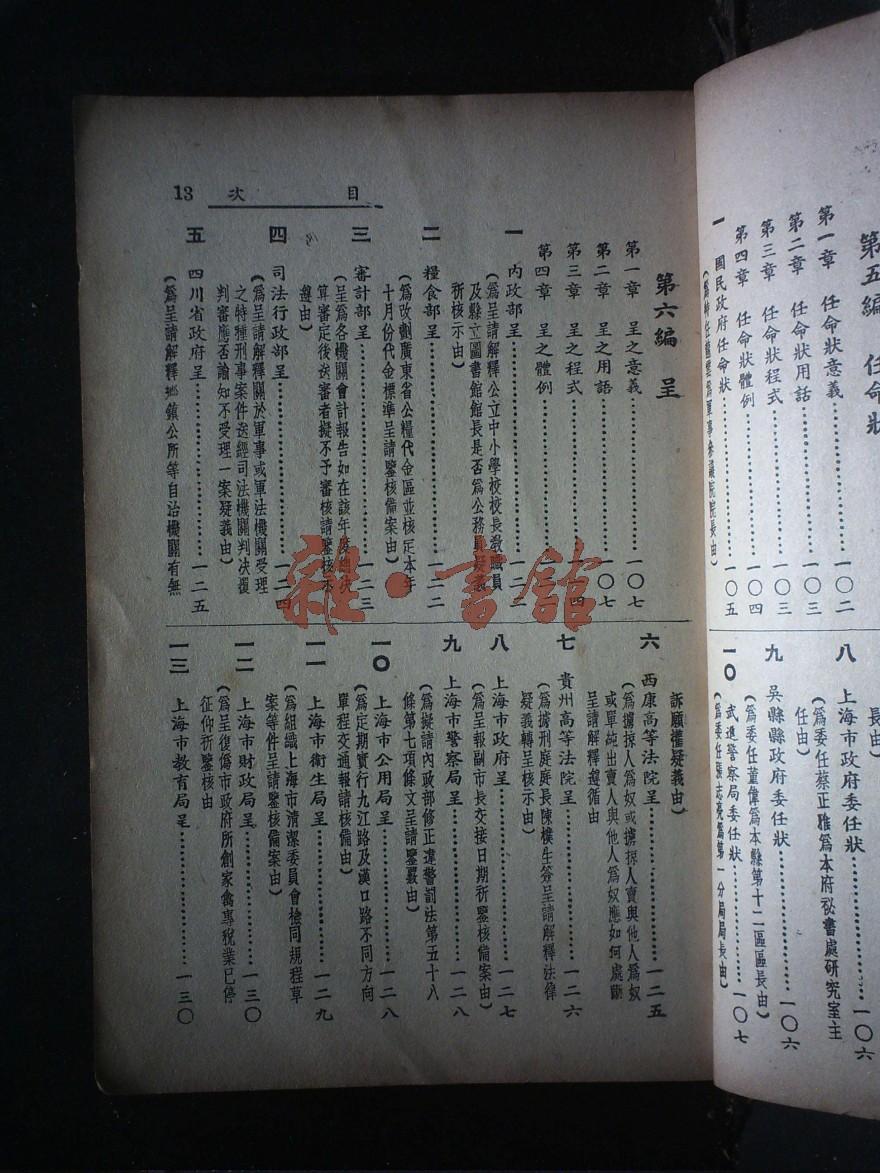 第五編 任命狀
第一章 任命狀意義……一〇二
第二章 任命狀用話……一〇三
第三章 任命狀程式……一〇三
第四章 任命狀體例……一〇四
一 國民政府任命狀……一〇五
爲軍事參議院院長由)
長由)
八 上海市政府委任狀……一〇六
(爲委任蔡正雅爲本府祕書處研究室主
任由)
九 吳縣縣政府委任狀……一〇六
(爲委任董偉爲本縣第十二區區長由)
一〇 武進警察局委任狀……一〇七
(爲委任張志亮爲第一分局局長由)
目次 13
第六編 呈
第一章 呈之意義……一〇七
第二章 呈之用語……一〇七
第三章 呈之程式
第四章 呈之體例
一 內政部呈
(爲呈請解釋公立中小學校校長教職員
及縣立圖書館館長是否爲公務員疑義
祈核示由)
二 糧食部呈……一二二
(爲改劃廣東省公糧代金區並核定本年
十月份代金標準呈請鑒核備案由)
三 審計部呈……一二三
(呈爲各機關會計報告如在該年度總決
算審定後送審者擬不予審核請鑒核示
遵由)
四 司法行政部呈……一二四
(爲呈請解釋關於軍事或軍法機關受理
之特種刑事案件送經司法機關判決覆
判審應否諭知不受理一案疑義由)
五 四川省政府呈……一二五
(爲呈請解釋鄉鎮公所等自治機關有無
訴願權疑義由)
六 西康高等法院呈……一二五
(爲擄掠人爲奴或擄掠人賣與他人爲奴
或單純出賣人與他人爲奴應如何處斷
呈請解釋遵循由
七 貴州高等法院呈……一二六
(爲據刑庭庭長陳樸生簽呈請解釋法律
疑義轉呈核示由)
八 上海市政府呈……一二七
(爲呈報副市長交接日期祈鑒核備案由)
九 上海市警察局呈……一二八
(爲擬請內政部修正違警罰法第五十八
條第七項條文呈請鑒覈由)
一〇 上海市公用局呈……一二八
(爲定期實行九江路及漢口路不同方向
單程交通報請核備由)
一一 上海市衞生局呈……一二九
(爲組織上海市清潔委員會檢同規程草
案等件呈請鑒核備案由)
一二 上海市財政局呈……一三〇
(爲呈復僞市政府所創家禽專稅業已停
征仰祈鑒核由
一三 上海市教育局呈……一三〇
雜·書館